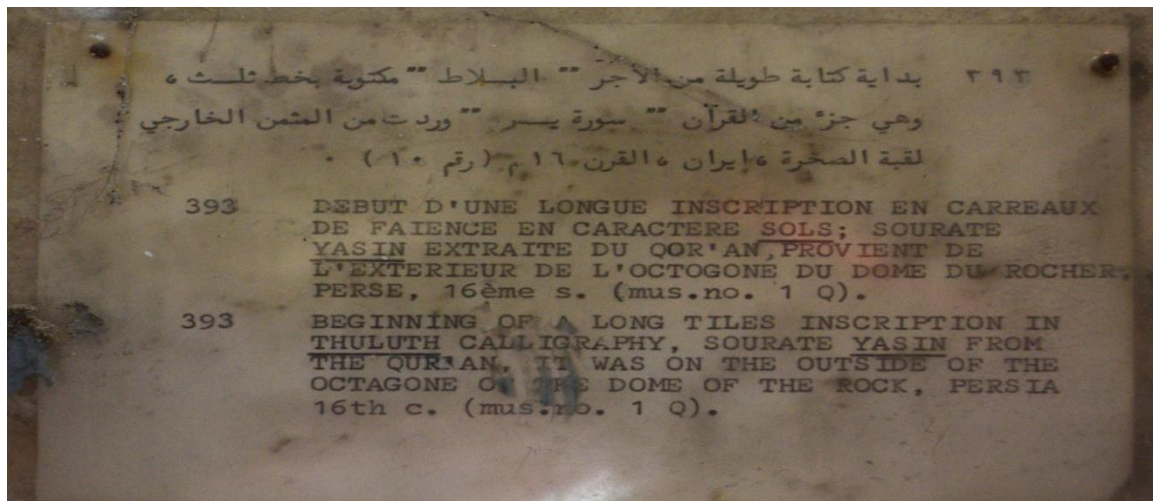 ٣٩٣ بداية كتابة طويلة من الآجر "" البلاط "" مكتوبة بخط ثلث ،
وهي جزء من القرآن "" سورة يسر "" وردت من المثمن الخارجي
لقبة الصخرة ، ايران ، القرن ١٦ م ( رقم ١٠ ) .
393 DEBUT D'UNE LONGUE INSCRIPTION EN CARREAUX
DE FAIENCE EN CARACTERE SOLS; SOURATE
YASIN EXTRAITE DU QOR'AN,PROVIENT DE
L'EXTERIEUR DE L'OCTOGONE DU DOME DU ROCHER,
PERSE, 16ème s. (mus.no. 1 Q).
393 BEGINNING OF A LONG TILES INSCRIPTION IN
THULUTH CALLIGRAPHY, SOURATE YASIN FROM
THE QUR'AN. IT WAS ON THE OUTSIDE OF THE
OCTAGONE OF THE DOME OF THE ROCK, PERSIA
16th c. (mus.no. 1 Q).